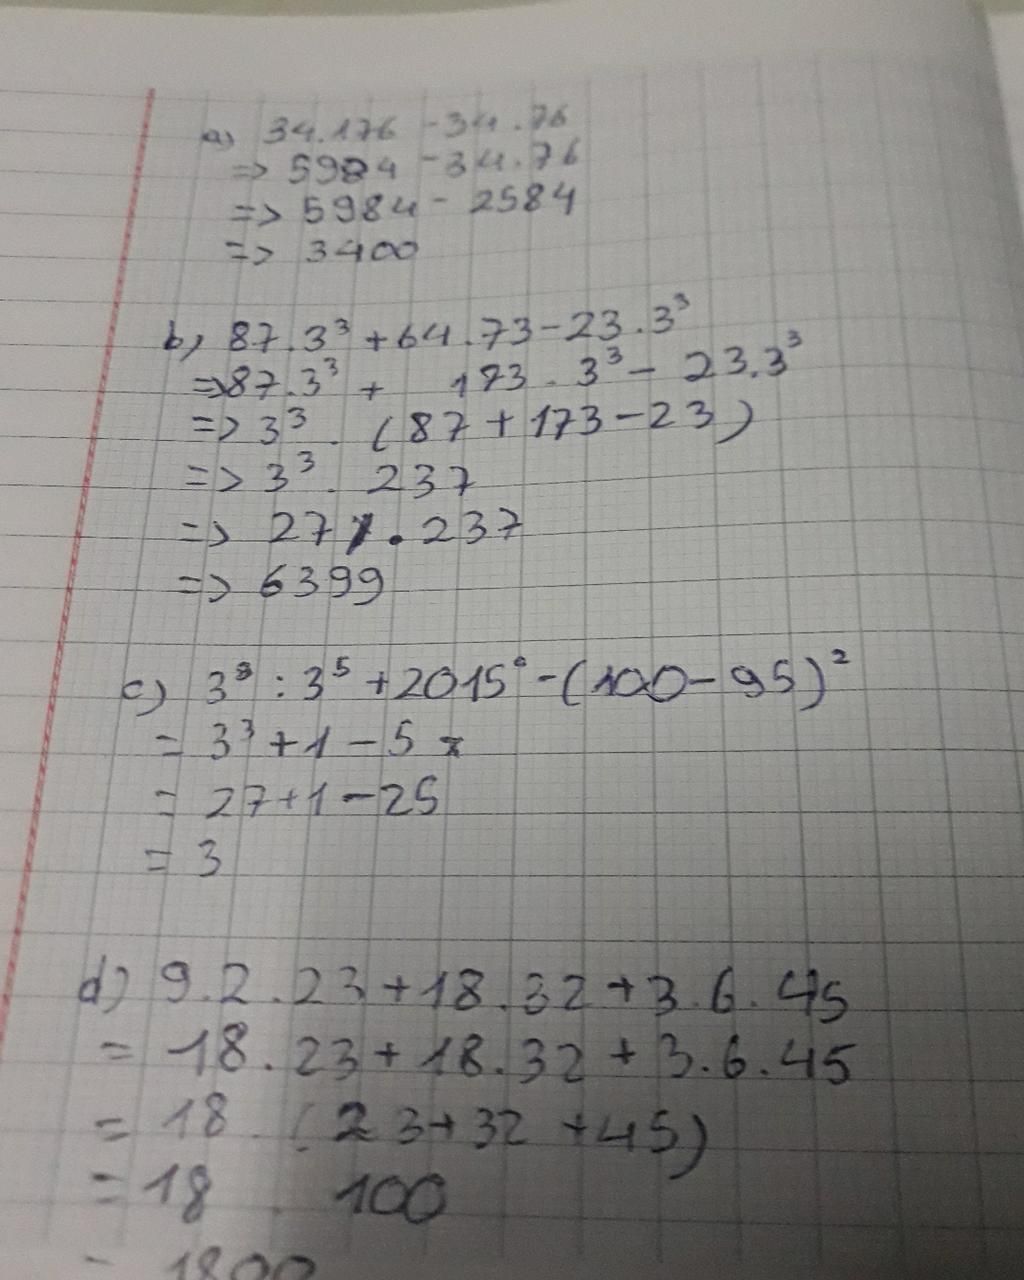 a) 34.176 - 34.76
=> 5984 - 34.76
=> 5984 - 2584
=> 3400
b) 87.3³ + 64.73 - 23.3³
=> 87.3³ + 173.3³ - 23.3³
=> 3³. (87 + 173 - 23)
=> 3³. 237
=> 27 . 237
=> 6399
c) 3⁸ : 3⁵ + 2015⁰ - (100 - 95)²
= 3³ + 1 - 5
= 27 + 1 - 25
= 3
d) 9.2.23 + 18.32 + 3.6.45
= 18.23 + 18.32 + 3.6.45
= 18 . (23 + 32 + 45)
= 18 . 100
= 1800